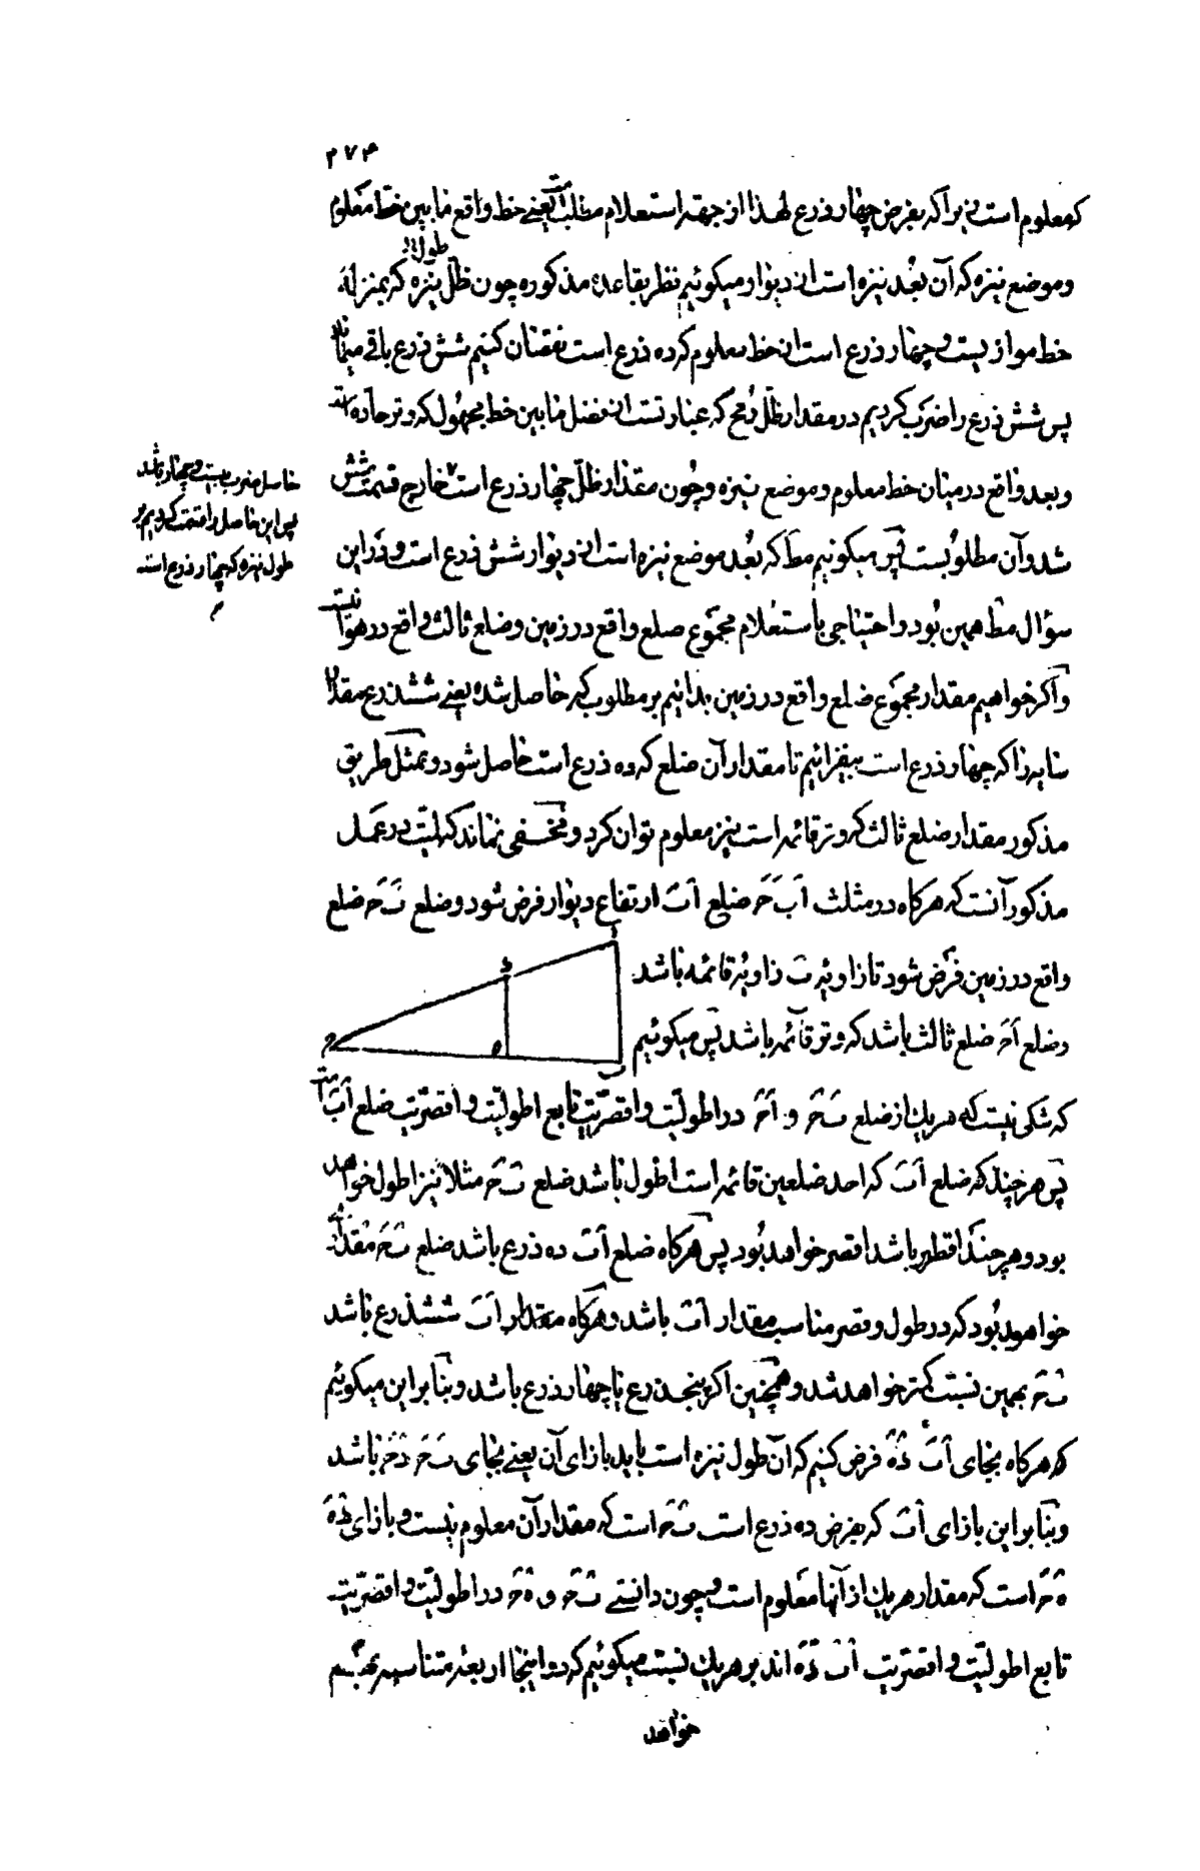 ۲۷۴
که معلوم است زیرا که بفرض چهار ذرع لهذا از جهة استعلام مطلب یعنے خط واقع مابین خط معلوم
طول
و موضع نیزه که آن بُعد نیزه است از دیوار میکوئیم نظر بقاعدهٔ مذکوره چون ظلّ نیزه که بمنزله
خط مواز بیست و چهار ذرع است از خط معلوم که ده ذرع است نقصان کنیم شش ذرع باقی میماند
پس شش ذرع را ضرب کردیم در مقدار ظلّ رُمح که عبارتست از فضل مابین خط مجهول که وتر حادّه است
و بعد واقع در میان خط معلوم و موضع نیزه و چون مقدار ظلّ چهار ذرع است خارج قسمت شش
حاصل ضرب بیست و چهار باشد
پس این حاصل را قسمت کردیم بر
طول نیزه که چهار ذرع است
شد و آن مطلوبست پس میکوئیم مط که بُعد موضع نیزه است از دیوار شش ذرع است و در این
سؤال مط همین بُود و احتیاجی باستعلام مجموع ضلع واقع در زمین و ضلع ثالث واقع در هوا نیست
و اکر خواهیم مقدار مجموع ضلع واقع در زمین بدانیم بر مطلوب که حاصل شده یعنے ششذرع مقدار
سایه را که چهار ذرع است بیفزائیم تا مقدار آن ضلع که ده ذرع است حاصل شود و بمثل طریق
مذکور مقدار ضلع ثالث که وتر قائمه است نیز معلوم توان کرد و مخفی نماند که لمیّت در عمل
مذکور آنست که هر کاه در مثلث اَبَ حَ ضلع اَبَ ارتفاع دیوار فرض شود و ضلع بَ حَ ضلع
واقع در زمین فرض شود تا زاویهٔ بَ زاویهٔ قائمه باشد
و ضلع اَحَ ضلع ثالث باشد که وتر قائمه باشد پس میکوئیم
ا
ء
ح
ه
ب
که شکی نیست که هر یک از ضلع بَ حَ و اَحَ در اطولیّت و اقصریّت تابع اطولیّت و اقصریّت ضلع اَبَ است
پس هر چند که ضلع اَبَ که احد ضلعین قائمه است اطول باشد ضلع بَ حَ مثلا نیز اطول خواهد
بود و هر چند اقصر باشد اقصر خواهد بُود پس هر کاه ضلع اَبَ ده ذرع باشد ضلع بَ حَ مقدار
خواهد بُود که در طول و قصر مناسب مقدار اَبَ باشد و هر کاه مقدار اَبَ ششذرع باشد
بَ حَ بهمین نسبت کمتر خواهد شد و همچنین اکر پنجذرع یا چهار ذرع باشد و بنا بر این میکوئیم
که هر کاه بجای اَبَ ءَهَ فرض کنیم که آن طول نیزه است باید بازای آن یعنے بجای بَ حَ هَ حَ باشد
و بنا بر این بازای اَبَ که بفرض ده ذرع است بَ حَ است که مقدار آن معلوم نیست و بازای ءَهَ
هَ حَ است که مقدار هر یک از آنها معلوم است و چون دانستے بَ حَ و هَ حَ در اطولیّت و اقصریّت
تابع اطولیّت و اقصریّت اَبَ ءَهَ اند بر هر یک نسبت میکوئیم که در اینجا اربعهٔ متناسبه بهم
خواهد